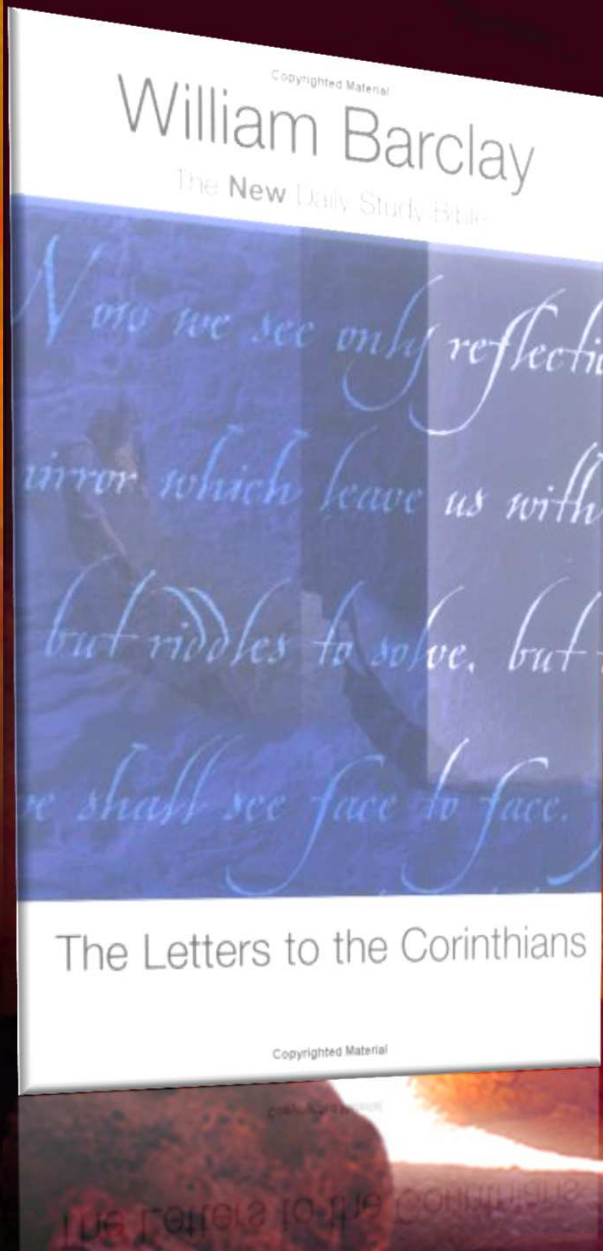 Copyrighted Material
William Barclay
The New Daily Study Bible
Now we see only reflecti
irror which leave us with
but riddles to solve, but
e shall see face to face.
The Letters to the Corinthians
Copyrighted Material
The Letters to the Corinthians